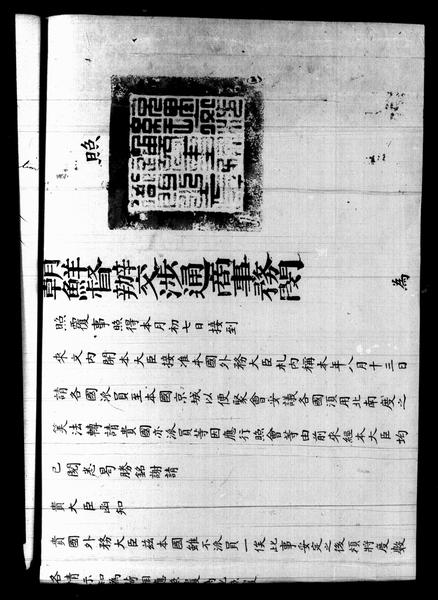 照
朝鮮督辦交涉通商事務閔 為
照覆事照得本月初七日接到
來文內開本大臣接准本國外務大臣札內稱本年八月十三日
請各國派員至本國京城以便聚會妥議各國須用北南度之
笇法轉請貴國亦派員等因應行照會等由前來經本大臣均
已閱悉曷勝銘謝請
貴大臣函知
貴國外務大臣茲本國雖不派員一俟此事妥定之後煩將度數